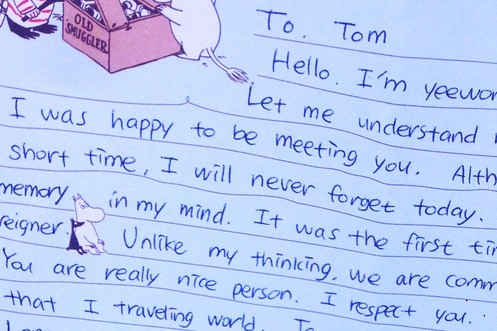 OLD SMUGGLER
To. Tom
Hello. I'm yeewon
Let me understand
I was happy to be meeting you. Alth
short time, I will never forget today.
memory in my mind. It was the first tim
reigner. Unlike my thinking, we are comm
You are really nice person. I respect you.
that I traveling world. To